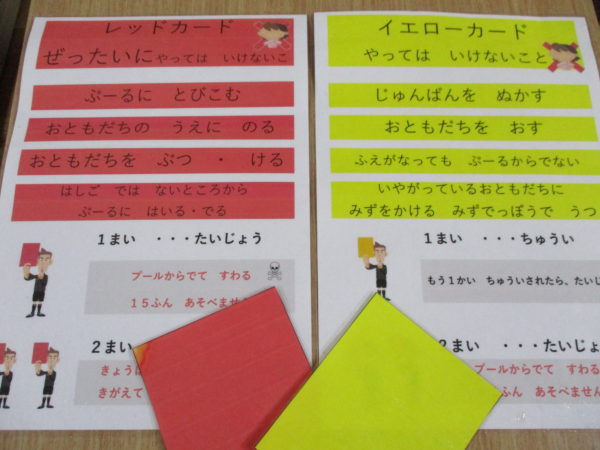 レッドカード
ぜったいにやっては いけないこ
ぷーるに とびこむ
おともだちの うえに のる
おともだちを ぶつ ・ ける
はしご では ないところから
ぷーるに はいる・でる
1まい ・・・たいじょう
プールからでて すわる
15ふん あそべません
2まい
きょうは
きがえて
イエローカード
やっては いけないこと
じゅんばんを ぬかす
おともだちを おす
ふえがなっても ぷーるからでない
いやがっているおともだちに
みずをかける みずでっぽうで うつ
1まい ・・・ちゅうい
もう1かい ちゅういされたら、たいじ
2まい ・・・たいじょう
プールからでて すわる
ふん あそべません